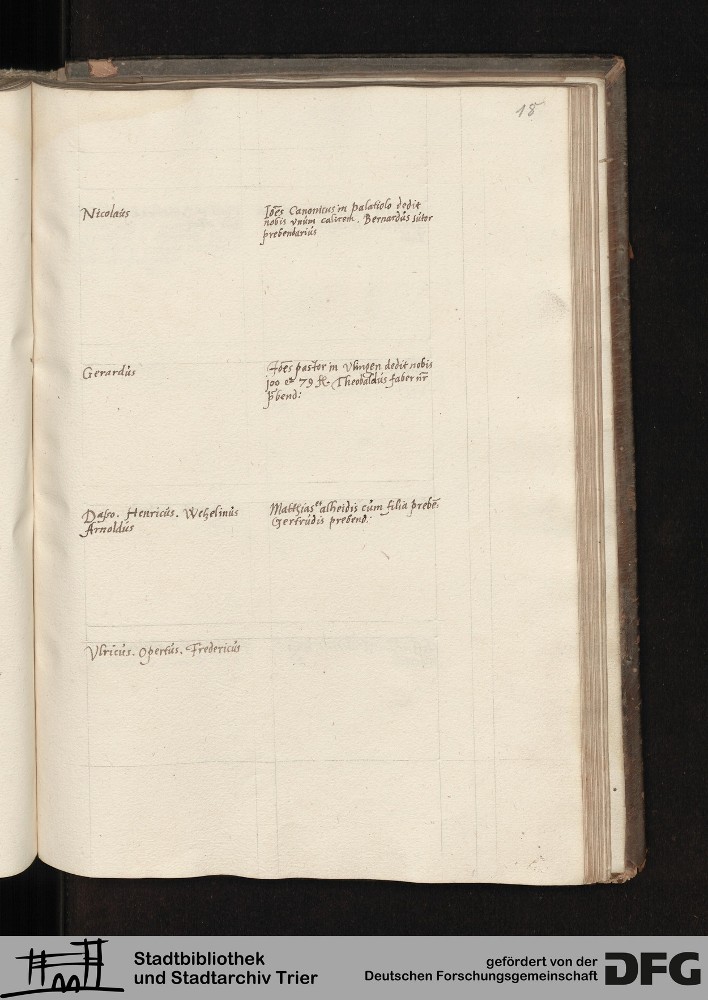 18
Nicolaus
Ioēs Canonicus in palatiolo dedit
nobis vnum calicem. Bernardus sutor
prebendarius
Gerardus
Ioēs pastor in Vlingen dedit nobis
100 et 79 fl. Theobaldus faber nr̄
p̄bend:
Dasso. Henricus. Wezelinus
Arnoldus
Matthias et alheidis cum filia prebē:
Gertrudis prebend:
Vlricus. Opertus. Fredericus
Stadtbibliothek
und Stadtarchiv Trier
gefördert von der
Deutschen Forschungsgemeinschaft
DFG